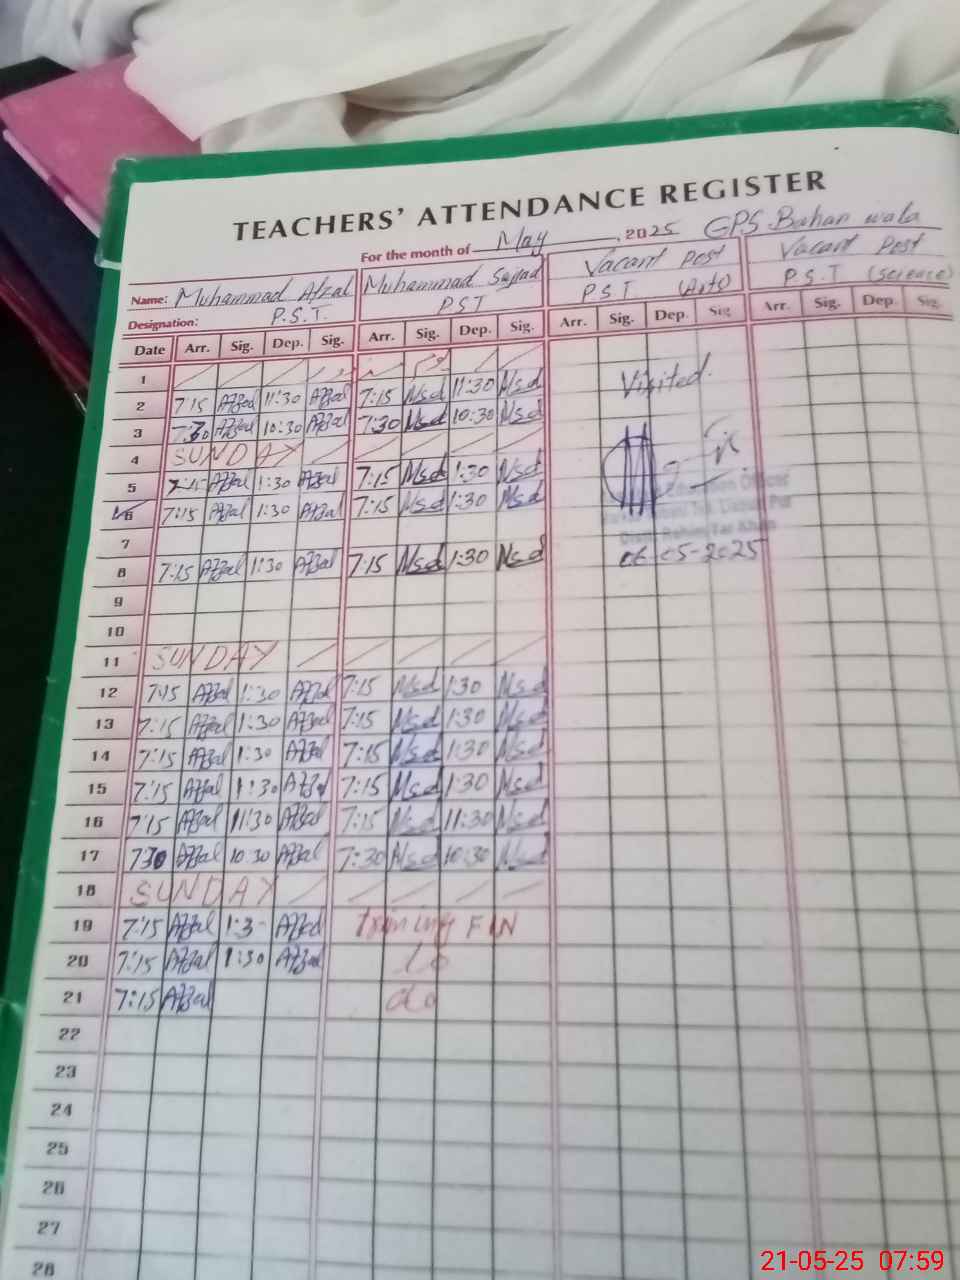 TEACHERS' ATTENDANCE REGISTER
For the month of May, 2025 GPS Bahan wala
Name: Muhammad Afzal Muhammad Sajjad Vacant Post Vacant Post
Designation: P.S.T. PST P.S.T. (Arts) P.S.T (Science)
Date Arr. Sig. Dep. Sig. Arr. Sig. Dep. Sig. Arr. Sig. Dep. Sig Arr. Sig. Dep. Sig.
1
2 7:15 Afzal 11:30 Afzal 7:15 Msd 11:30 Msd Visited.
3 7:30 Afzal 10:30 Afzal 7:30 Msd 10:30 Msd
4 SUNDAY
5 7:15 Afzal 1:30 Afzal 7:15 Msd 1:30 Msd Education Officer
6 7:15 Afzal 1:30 Afzal 7:15 Msd 1:30 Msd
7 Khan
8 7:15 Afzal 1:30 Afzal 7:15 Msd 1:30 Msd 06-05-2025
9
10
11 SUNDAY
12 7:15 Afzal 1:30 Afzal 7:15 Msd 1:30 Msd
13 7:15 Afzal 1:30 Afzal 7:15 Msd 1:30 Msd
14 7:15 Afzal 1:30 Afzal 7:15 Msd 1:30 Msd
15 7:15 Afzal 1:30 Afzal 7:15 Msd 1:30 Msd
16 7:15 Afzal 11:30 Afzal 7:15 Msd 11:30 Msd
17 7:30 Afzal 10:30 Afzal 7:30 Msd 10:30 Msd
18 SUNDAY
19 7:15 Afzal 1:3- Afzal FIN
20 7:15 Afzal 1:30 Afzal
21 7:15 Afzal do
22
23
24
25
26
27
28
21-05-25 07:59